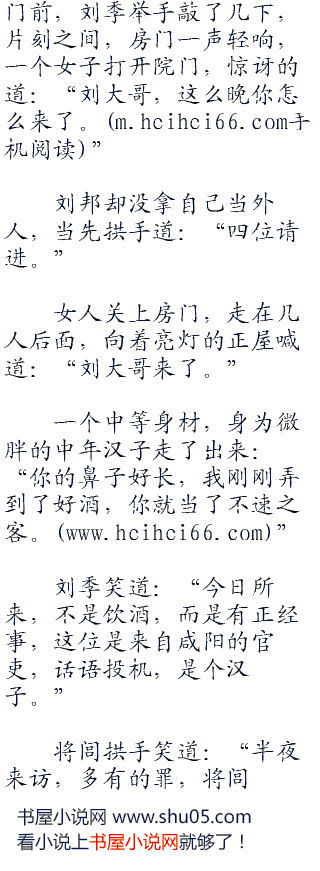 门前，刘季举手敲了几下，
片刻之间，房门一声轻响，
一个女子打开院门，惊讶的
道：“刘大哥，这么晚你怎
么来了。(m.hcihci66.com手
机阅读)”
刘邦却没拿自己当外
人，当先拱手道：“四位请
进。”
女人关上房门，走在几
人后面，向着亮灯的正屋喊
道：“刘大哥来了。”
一个中等身材，身为微
胖的中年汉子走了出来：
“你的鼻子好长，我刚刚弄
到了好酒，你就当了不速之
客。(www.hcihci66.com)”
刘季笑道：“今日所
来，不是饮酒，而是有正经
事，这位是来自咸阳的官
吏，话语投机，是个汉
子。”
将闾拱手笑道：“半夜
来访，多有的罪，将闾
书屋小说网 www.shu05.com
看小说上书屋小说网就够了！